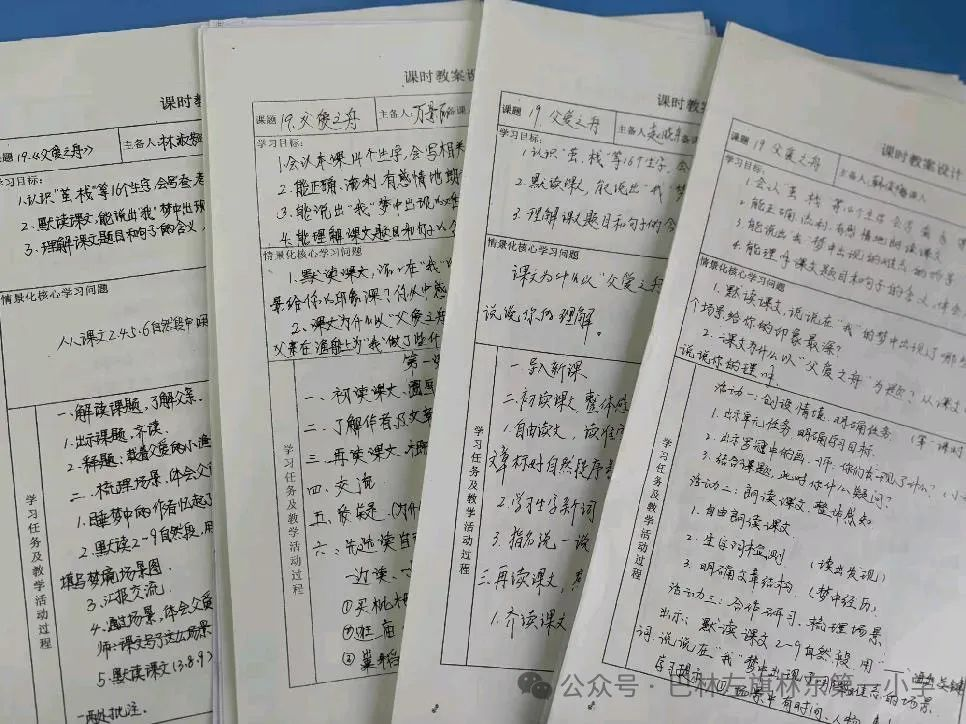 课时教
课题 19.《父爱之舟》
主备人
学习目标:
1.认识“茧、栈”等16个生字,会写
2.默读课文,能说出“我”梦中出现
3.理解课文题目和句子的含义,
情景化核心学习问题
课文2.4.5.6自然段中
学习任务及教学活动过程
一.解读课题,了解父亲.
1.出示课题,齐读.
2.释题:
二.梳理场景,体会父
1.睡梦中的作者忆起了
2.默读2-9自然段,用
填写梦境场景图.
3.汇报交流.
4.通过场景,体会父爱
师:课文写了这么场景
5.默读课文(3.8.9)
批注.
课时教案设
课题 19.父爱之舟
主备人
备课
学习目标:
1.会认本课 个生字,会写相关
2.能正确,流利,有感情地朗
3.能说出“我”梦中出现的难
4.能理解课文题目和句子的含
情景化核心学习问题
1.默读课文,说一说在“我”
景给你的印象深?你从中感
2.课文为什么以“父爱之舟
父亲在渔船上为“我”做了些什
学习任务及教学活动过程
第一
一.初读课文,
二.了解作者及文章
三.再读课文,
四.交流
五.质疑.(为什
六.先速读
一边读,
①买枇杷
②逛庙
③
课时教案
课题 19 父爱之舟
主备人
备课
学习目标:
1.认识“茧、栈”等16个生字,会
2.默读课文,能说出“我”梦
3.理解课文题目和句子的含
情景化核心学习问题
课文为什么以“父爱之舟
说说你的理解。
学习任务及教学活动过程
一.导入新课
二.初读课文 整体感
1.自由读文,读准
章标好自然段序号
2.学习生字新词
3.指名说一说
三.再读课文,
1.齐读课文
课时教案设计
课题 19 父爱之舟
主备人
学习目标:
1.会认 茧 栈 等16个生字 会写
2.能正确 流利 有感情地朗读课文
3.能说出“我”梦中出现的难忘的场景
4.能理解课文题目和句子的含义,体会
情景化核心学习问题
1.默读课文,说说在“我”的梦中出现了哪些
个场景给你的印象最深?
2.课文为什么以“父爱之舟”为题?从课文
说说你的理解
学习任务及教学活动过程
活动一:创设情境,明确任务.(第一课时
1.出示单元任务,明确学习目标.
2.出示吴冠中的画.师:你们发现了什么?
3.结合课题,此时你有什么疑问?
活动二:朗读课文,整体感知
1.自由朗读课文.
2.生字词检测 (读出发现)
3.明确文章结构 (梦中经历,
活动三:合作研习,梳理场景
出示:默读课文2-9自然段 用“——”画出关键
词.说说在“我”梦中出现了哪些难忘的场景.
学习提示:①场景中有时间、人物
公众号·巴林左旗林东第一小学